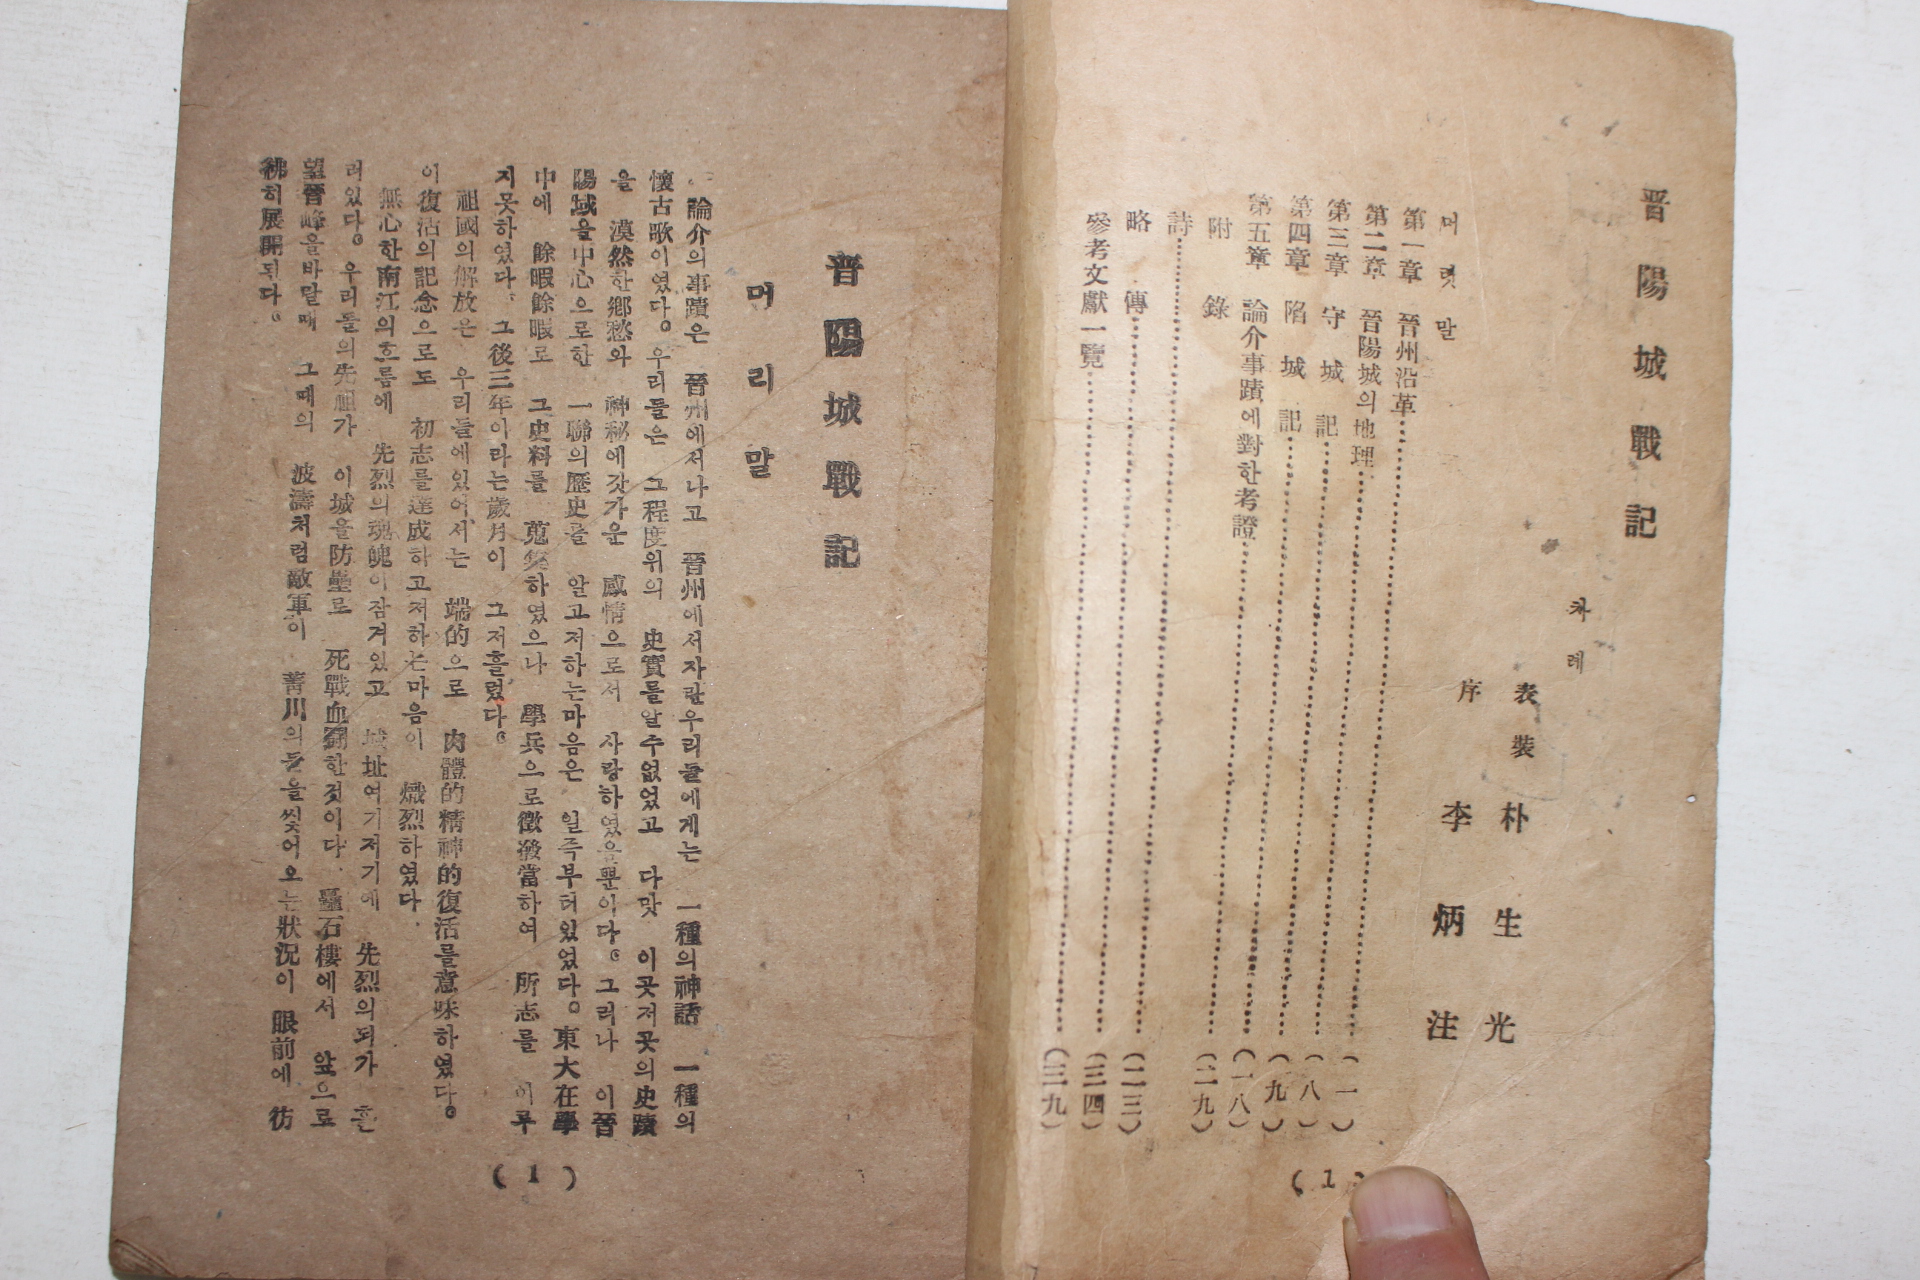 晋陽城戰記
차례
表裝 朴生光
序 李炳注
머릿말
第一章 晉州沿革 (一)
第二章 晉陽城의地理
第三章 守城記 (八)
第四章 陷城記 (九)
第五章 論介事蹟에對한考證 (一八)
附錄 (二九)
詩 (二三)
略傳 (三四)
參考文獻一覽 (三九)
(1)
晋陽城戰記
머리말
論介의事蹟은 晉州에서나고 晉州에서자란우리들에게는 一種의神話 一種의
懷古歌이였다。우리들은 그程度위의 史實를알수없었고 다맛 이곳저곳의史蹟
을 漠然한鄕愁와 神秘에갓가운 感情으로서 사랑하였을뿐이다。그러나 이晉
陽城을中心으로한 一聯의歷史를 알고저하는마음은 일즉부터있었다。東大在學
中에 餘暇餘暇로 그史料를 蒐集하였으나 學兵으로徵發當하여 所志를 이루
지못하였다。그後三年이라는歲月이 그저흘렀다。
祖國의解放은 우리들에있어서는 端的으로 肉體的精神的復活를意味하였다。
이復活의記念으로도 初志를達成하고저하는마음이 熾烈하였다.
無心한南江의흐름에 先烈의魂魄이잠겨있고 城址여기저기에 先烈의되가 흔
러있다。우리들의先祖가 이城을防壘로 死戰血鬪한것이다. 矗石樓에서 앞으로
望晉峰을바랄때 그때의 波濤처럼敵軍이 菁川의들을씻어오는狀況이 眼前에 彷
彿히展開되다。
(1)